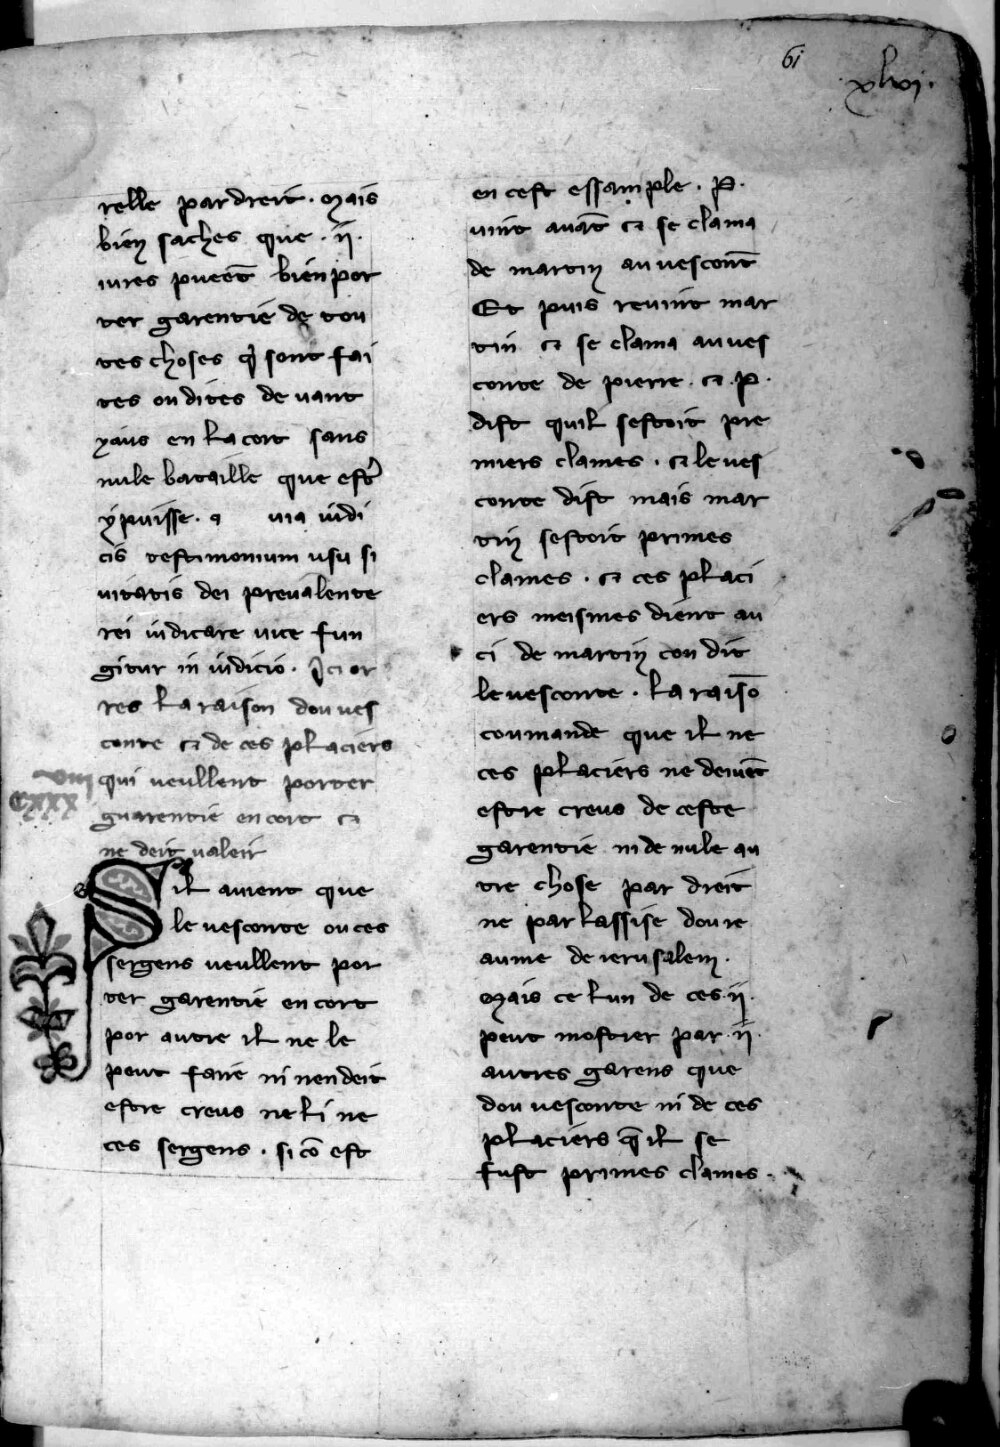 61
xlvj.
relle par dreit. mais
bien saches que .ij.
iures pueēt bien por
ter garentie de tou
tes choses q̄ sont fai
tes ou dites devant
yaus en la cort sans
nule bataille que estr̄
ypuisse. et via iudi
cis testimonium usu si
vitatis dei prevalente
rei iudicare vice fun
gitur in iudicio. Ici or
res la raison dou ves
conte et de ces placiers
qui veullent porter
guarentie en cort et
ne deit valeir
viij
CXXX
Sil avient que
le vesconte ou ces
sergens veullent por
ter garentie en cort
por autre il ne le
peut faire ni nen deit
estre creus ne li ne
ces sergens. si cō est
en cest essample. P.
vint avāt et se clama
de martin au vescont̄
Et puis revint mar
tin et se clama au ves
conte de pierre. et .P.
dist quil sestoit pre
miers clames. et le ves
conte dist mais mar
tin sestoit primes
clames. et ces placi
ers meismes dient au
ci de martin con dit
le vesconte. La raisō
coumande que il ne
ces placiers ne devēt
estre creus de ceste
garentie ni de nule au
tre chose par dreit
ne par lassise dou re
aume de ierusalem.
mais ce lun de ces .ij.
peut mostrer par .ij.
autres garens que
dou vesconte ni de ces
placiers q̄ il se
fust primes clames.